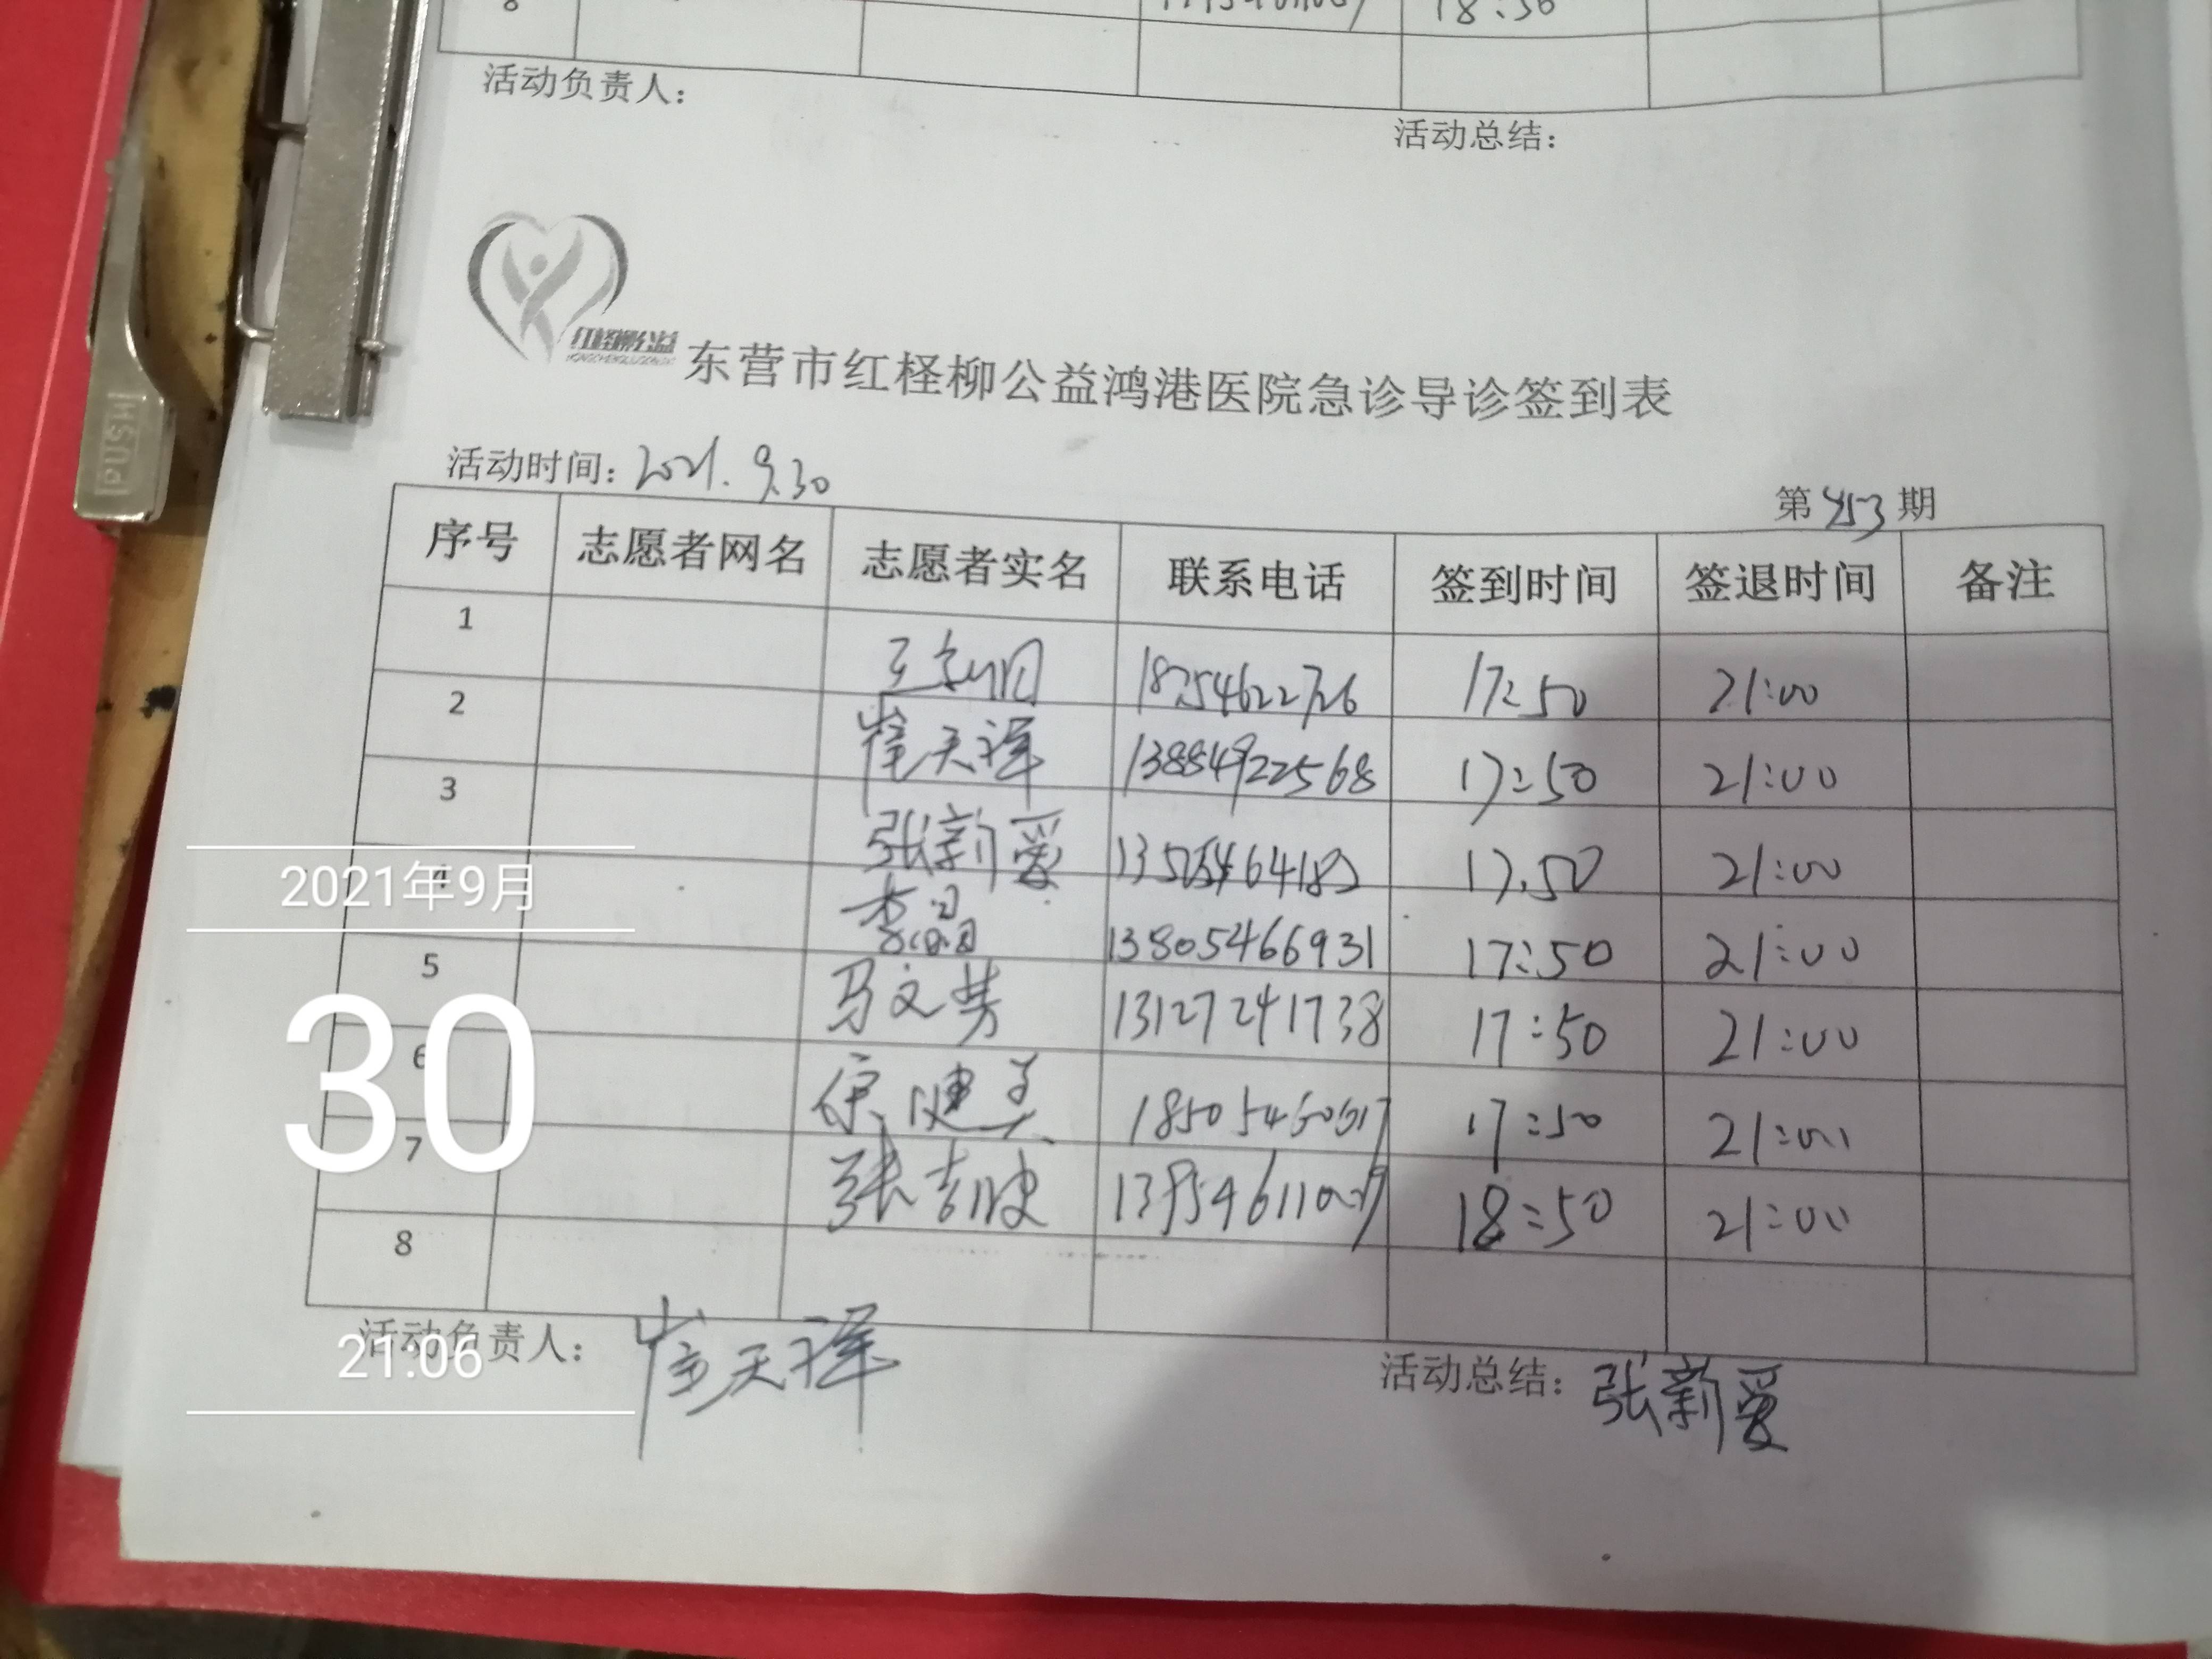 8 18:50
活动负责人：
活动总结：
红柽柳公益
东营市红柽柳公益鸿港医院急诊导诊签到表
活动时间：2021.9.30
第453期
序号 志愿者网名 志愿者实名 联系电话 签到时间 签退时间 备注
1 18254622726 17:50 21:00
2 崔天祥 13884922568 17:50 21:00
3 张新爱 17.50 21:00
4 李晶 13805466931 17:50 21:00
5 马文芳 13127241738 17:50 21:00
6 17:50 21:00
7 18:50 21:00
8
活动负责人：崔天祥
活动总结：张新爱
PUSH
2021年9月
30
21:06